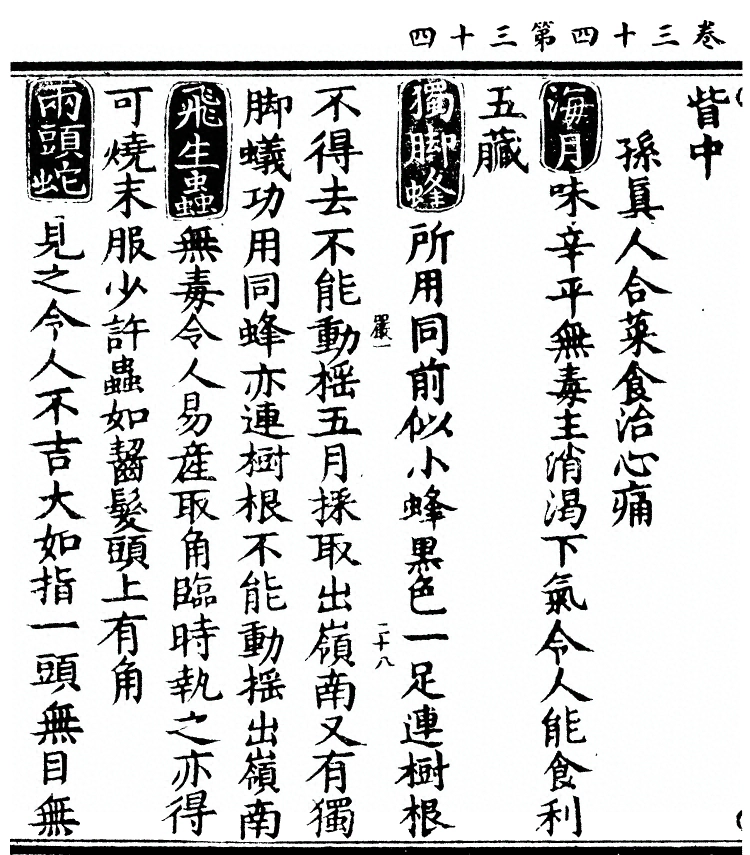 巻三十四第三十四
眥中
孫眞人合菜食治心痛
海月味辛平無毒主消渴下氣令人能食利
五臟
獨脚蜂所用同前似小蜂黑色一足連樹根
不得去不能動揺五月採取出嶺南又有獨
嚴一
二十八
脚蟻功用同蜂亦連樹根不能動揺出嶺南
飛生蟲無毒令人易產取角臨時執之亦得
可燒末服少許蟲如齧髮頭上有角
兩頭蛇見之令人不吉大如指一頭無目無